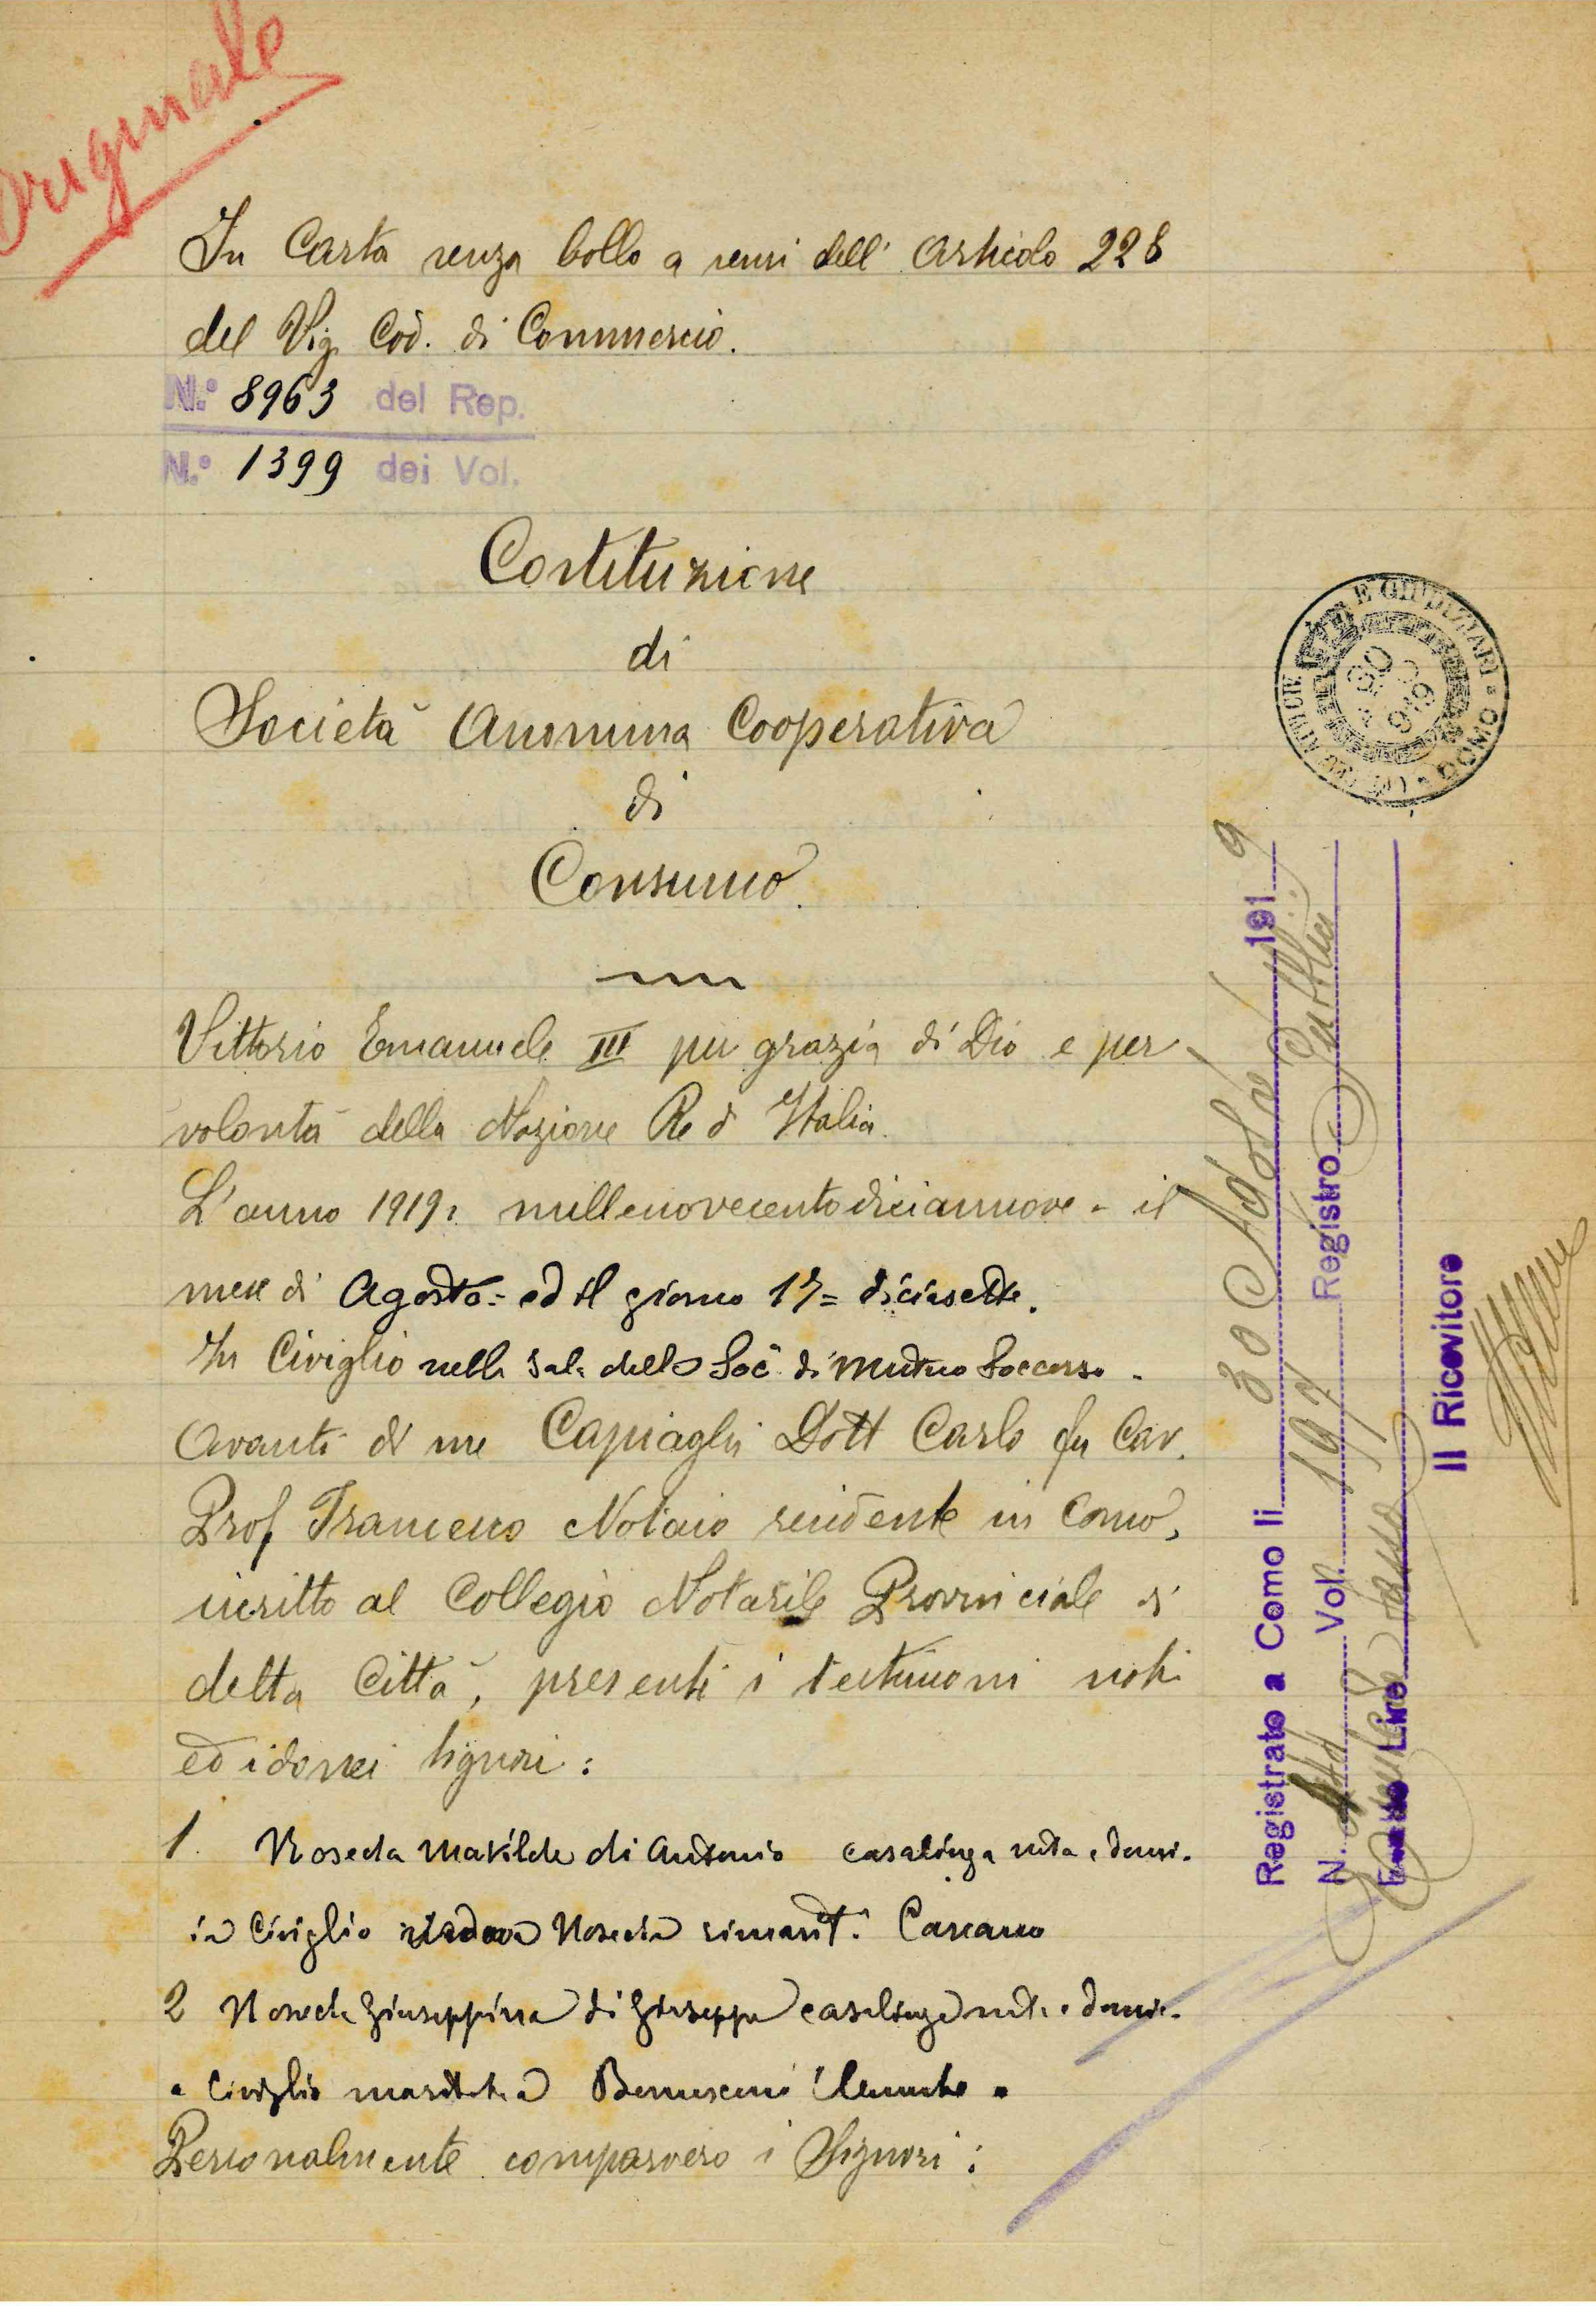 Originale
In Carta senza bollo a sensi dell' Articolo 228
del Vig. Cod. di Commercio.
N.° 8963 del Rep.
N.° 1399 dei Vol.
Costituzione
di
Società Anonima Cooperativa
di
Consumo.
Vittorio Emanuele III per grazia di Dio e per
volontà della Nazione Re d' Italia.
L'anno 1919. millenovecentodiciannove - il
mese di Agosto = ed il giorno 17 = diciasette.
In Civiglio nella sala della Soc. di Mutuo Soccorso.
Avanti di me Capiaghi Dott Carlo fu Cav.
Prof Francesco Notaio residente in Como,
iscritto al Collegio Notarile Provinciale di
detta Città, presenti i testimoni noti
ed idonei signori:
1. Noseda Matilde di Antonio casalinga nata e domi.
in Civiglio vedova Noseda rimarit. Cascano
2 Noseda Giuseppina di Giuseppe casalinga nata e domic.
a Civiglio maritata
Personalmente comparvero i Signori:
Registrato a Como li 30 Agosto 1919
N. Vol. 197 Registro Pubblici
Esatto Lire
Il Ricevitore